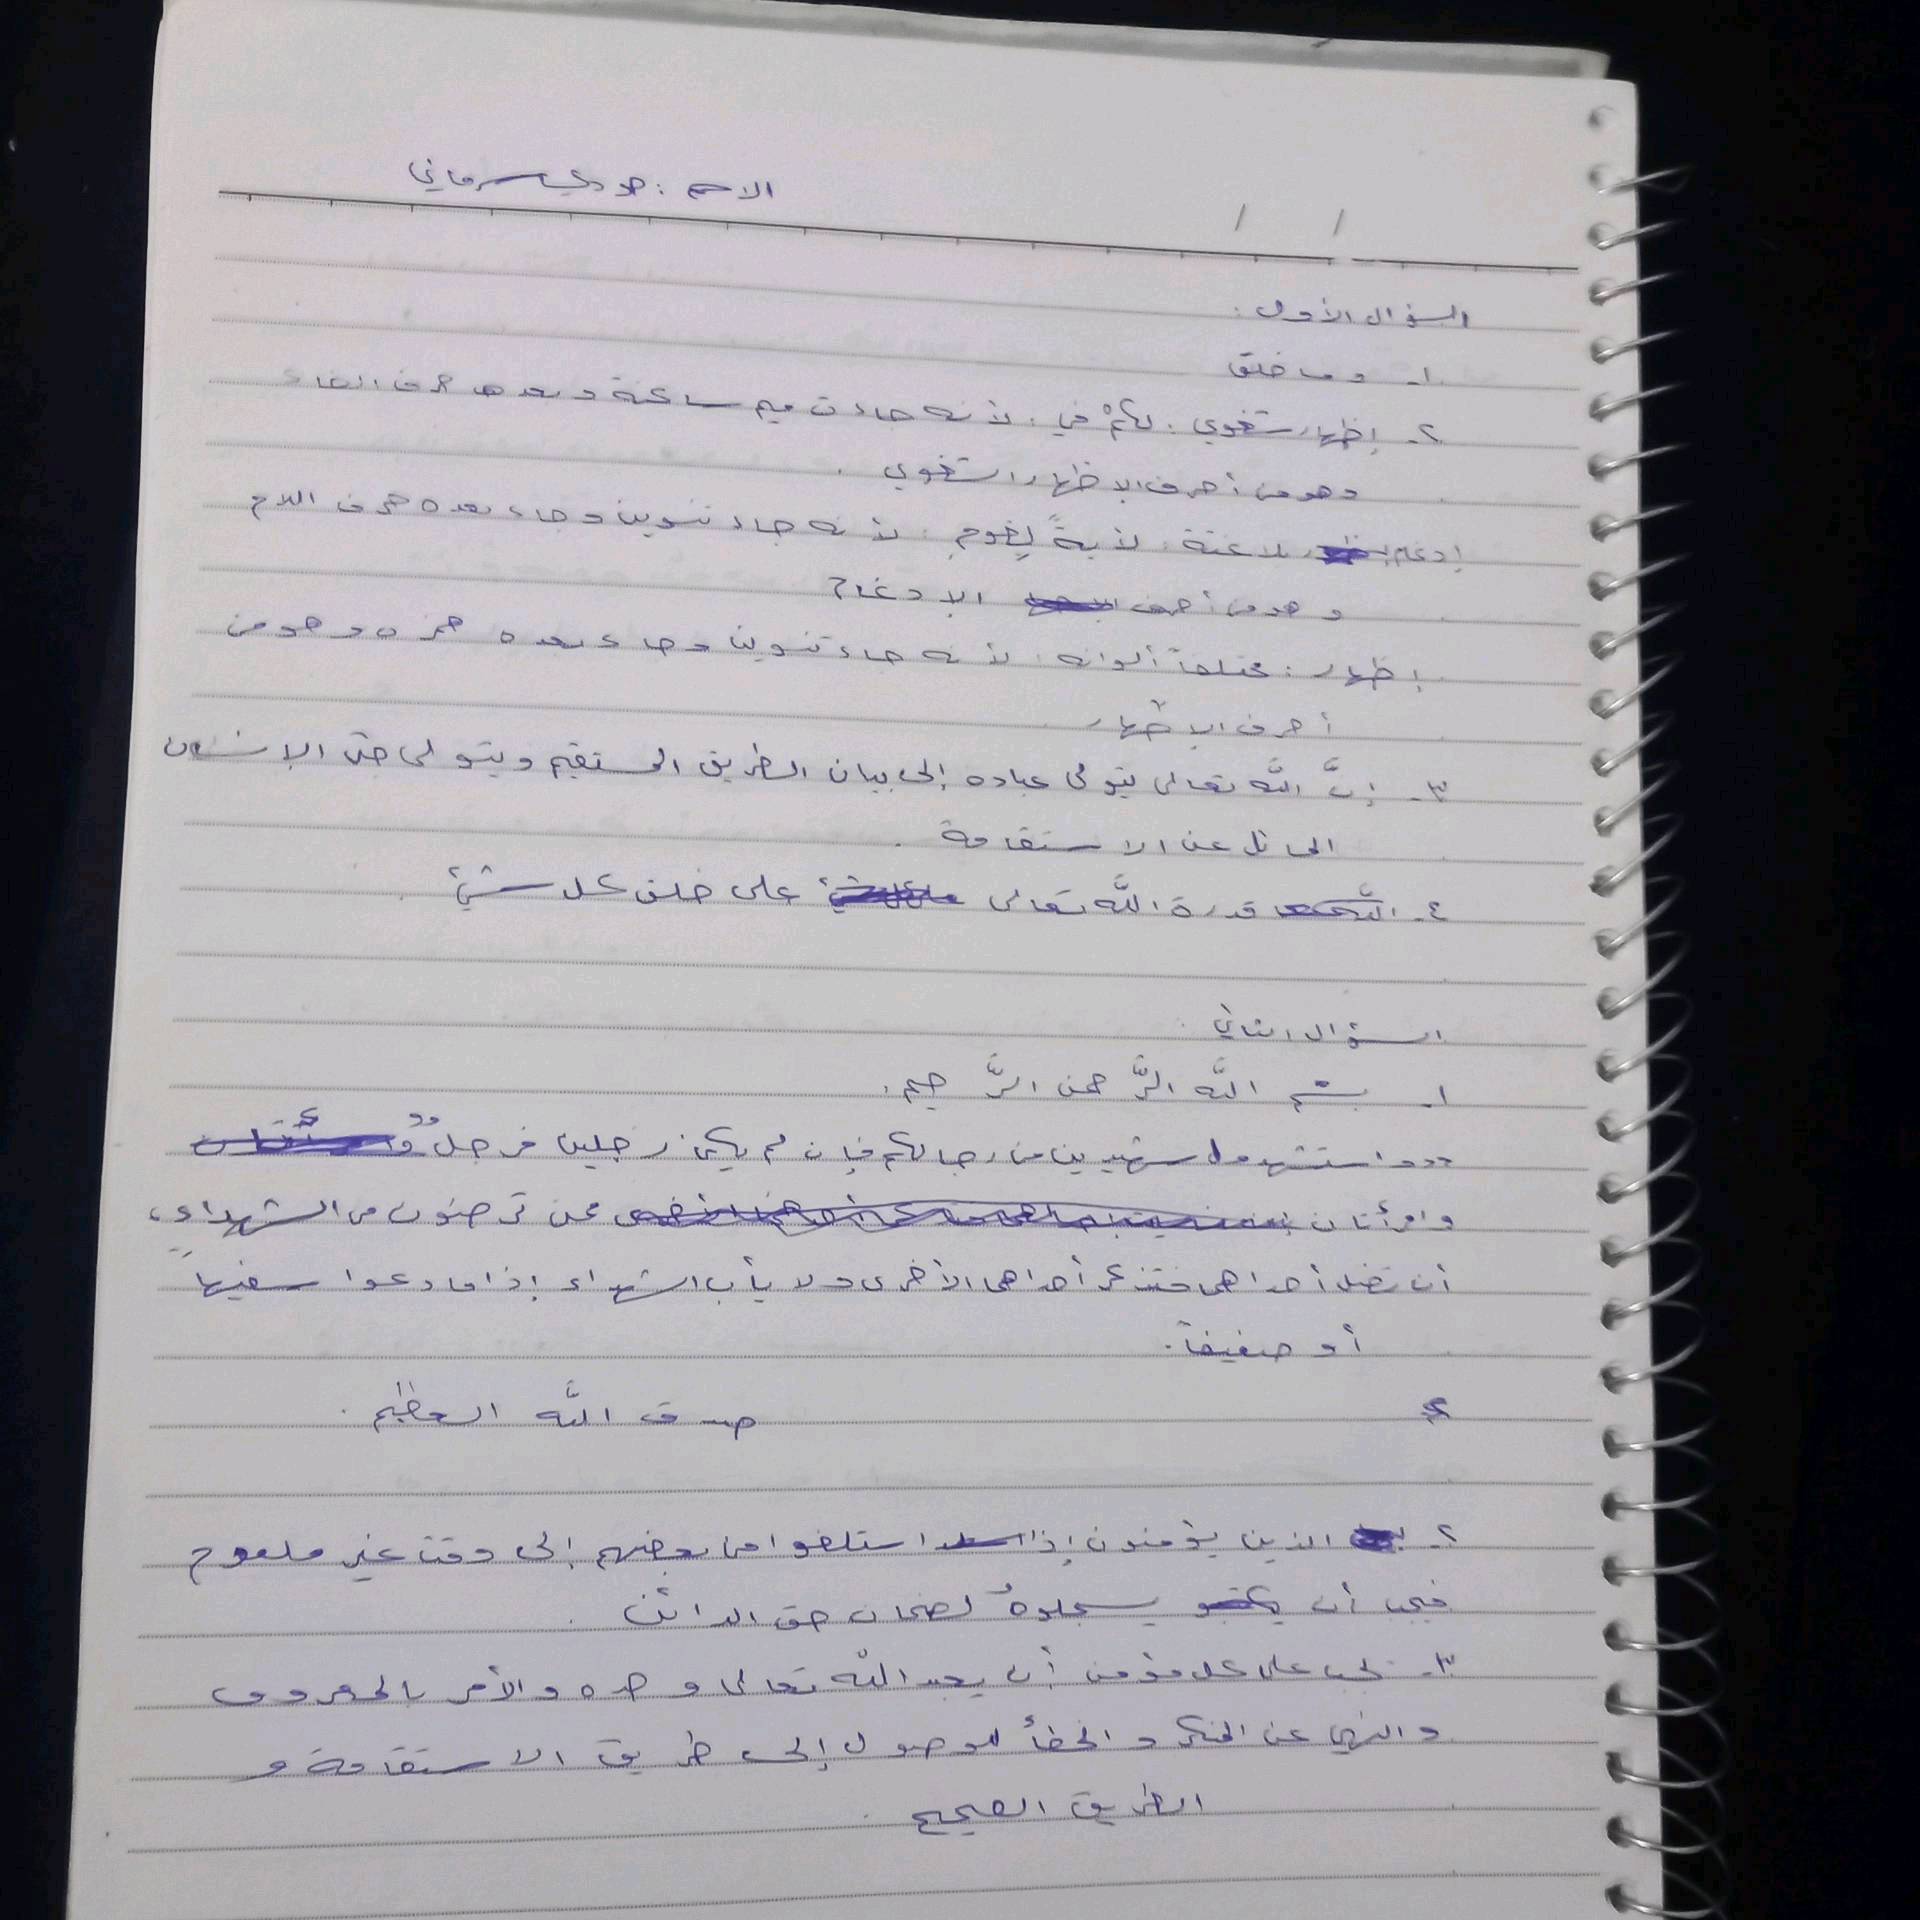 الاسم : جودي سرماني
/ /
السؤال الأول :
١- وما خلق
٢- إظهار شفوي : لكمْ في : لأنه جاءت ميم ساكنة وبعدها حرف الفاء
وهو من أحرف الإظهار الشفوي .
إدغام بلا غنة : لآيةً لقوم : لأنه جاء تنوين وجاء بعده حرف اللام
وهو من أحرف الإدغام
إظهار : مختلفاً ألوانه : لأنه جاء تنوين وجاء بعده همزه وهو من
أحرف الإظهار
٣- إنَّ اللَّه تعالى يتولى عباده إلى بيان الطريق المستقيم ويتولى حتى الإنسان
المائل عن الاستقامة .
٤- قدرة اللَّه تعالى على خلق كل شيء .
السؤال الثاني :
١- بسم اللَّه الرَّحمن الرَّحيم .
"واستشهدوا شهيدين من رجالكم فإن لم يكن رجلين فرجلٌ
وامرأتان ممن ترضون من الشهداءِ
أن تضل أحداهى فتذكر أحداهى الأخرى ولا يأب الشهداء إذا ما دعوا سفيهاً
أو ضعيفاً .
صدق اللَّه العظيم .
٢- الذين يؤمنون إذا استلفوا من بعضهم إلى وقت غير معلوم
فيجب أن يسجلوهُ لضمان حق الدائن .
٣- يجب على كل مؤمن أن يعبد اللَّه تعالى وحده والأمر بالمعروف
والنهي عن المنكر والخطأ للوصول إلى طريق الاستقامة و
الطريق الصحيح .